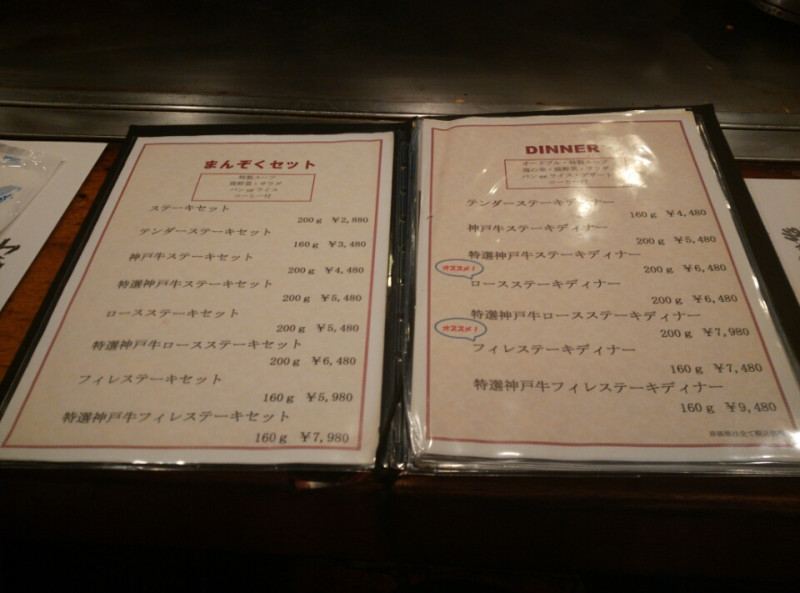 まんぞくセット
特製スープ
焼野菜・サラダ
パン or ライス
コーヒー付
ステーキセット
200g ¥2,880
テンダーステーキセット
160g ¥3,480
神戸牛ステーキセット
200g ¥4,480
特選神戸牛ステーキセット
200g ¥5,480
ロースステーキセット
200g ¥5,480
特選神戸牛ロースステーキセット
200g ¥6,480
フィレステーキセット
160g ¥5,980
特選神戸牛フィレステーキセット
160g ¥7,980
DINNER
オードブル・特製スープ
海の幸・焼野菜・サラダ
パン or ライス・デザート
コーヒー付
テンダーステーキディナー
160g ¥4,480
神戸牛ステーキディナー
200g ¥5,480
特選神戸牛ステーキディナー
200g ¥6,480
オススメ!
ロースステーキディナー
200g ¥6,480
特選神戸牛ロースステーキディナー
200g ¥7,980
オススメ!
フィレステーキディナー
160g ¥7,480
特選神戸牛フィレステーキディナー
160g ¥9,480